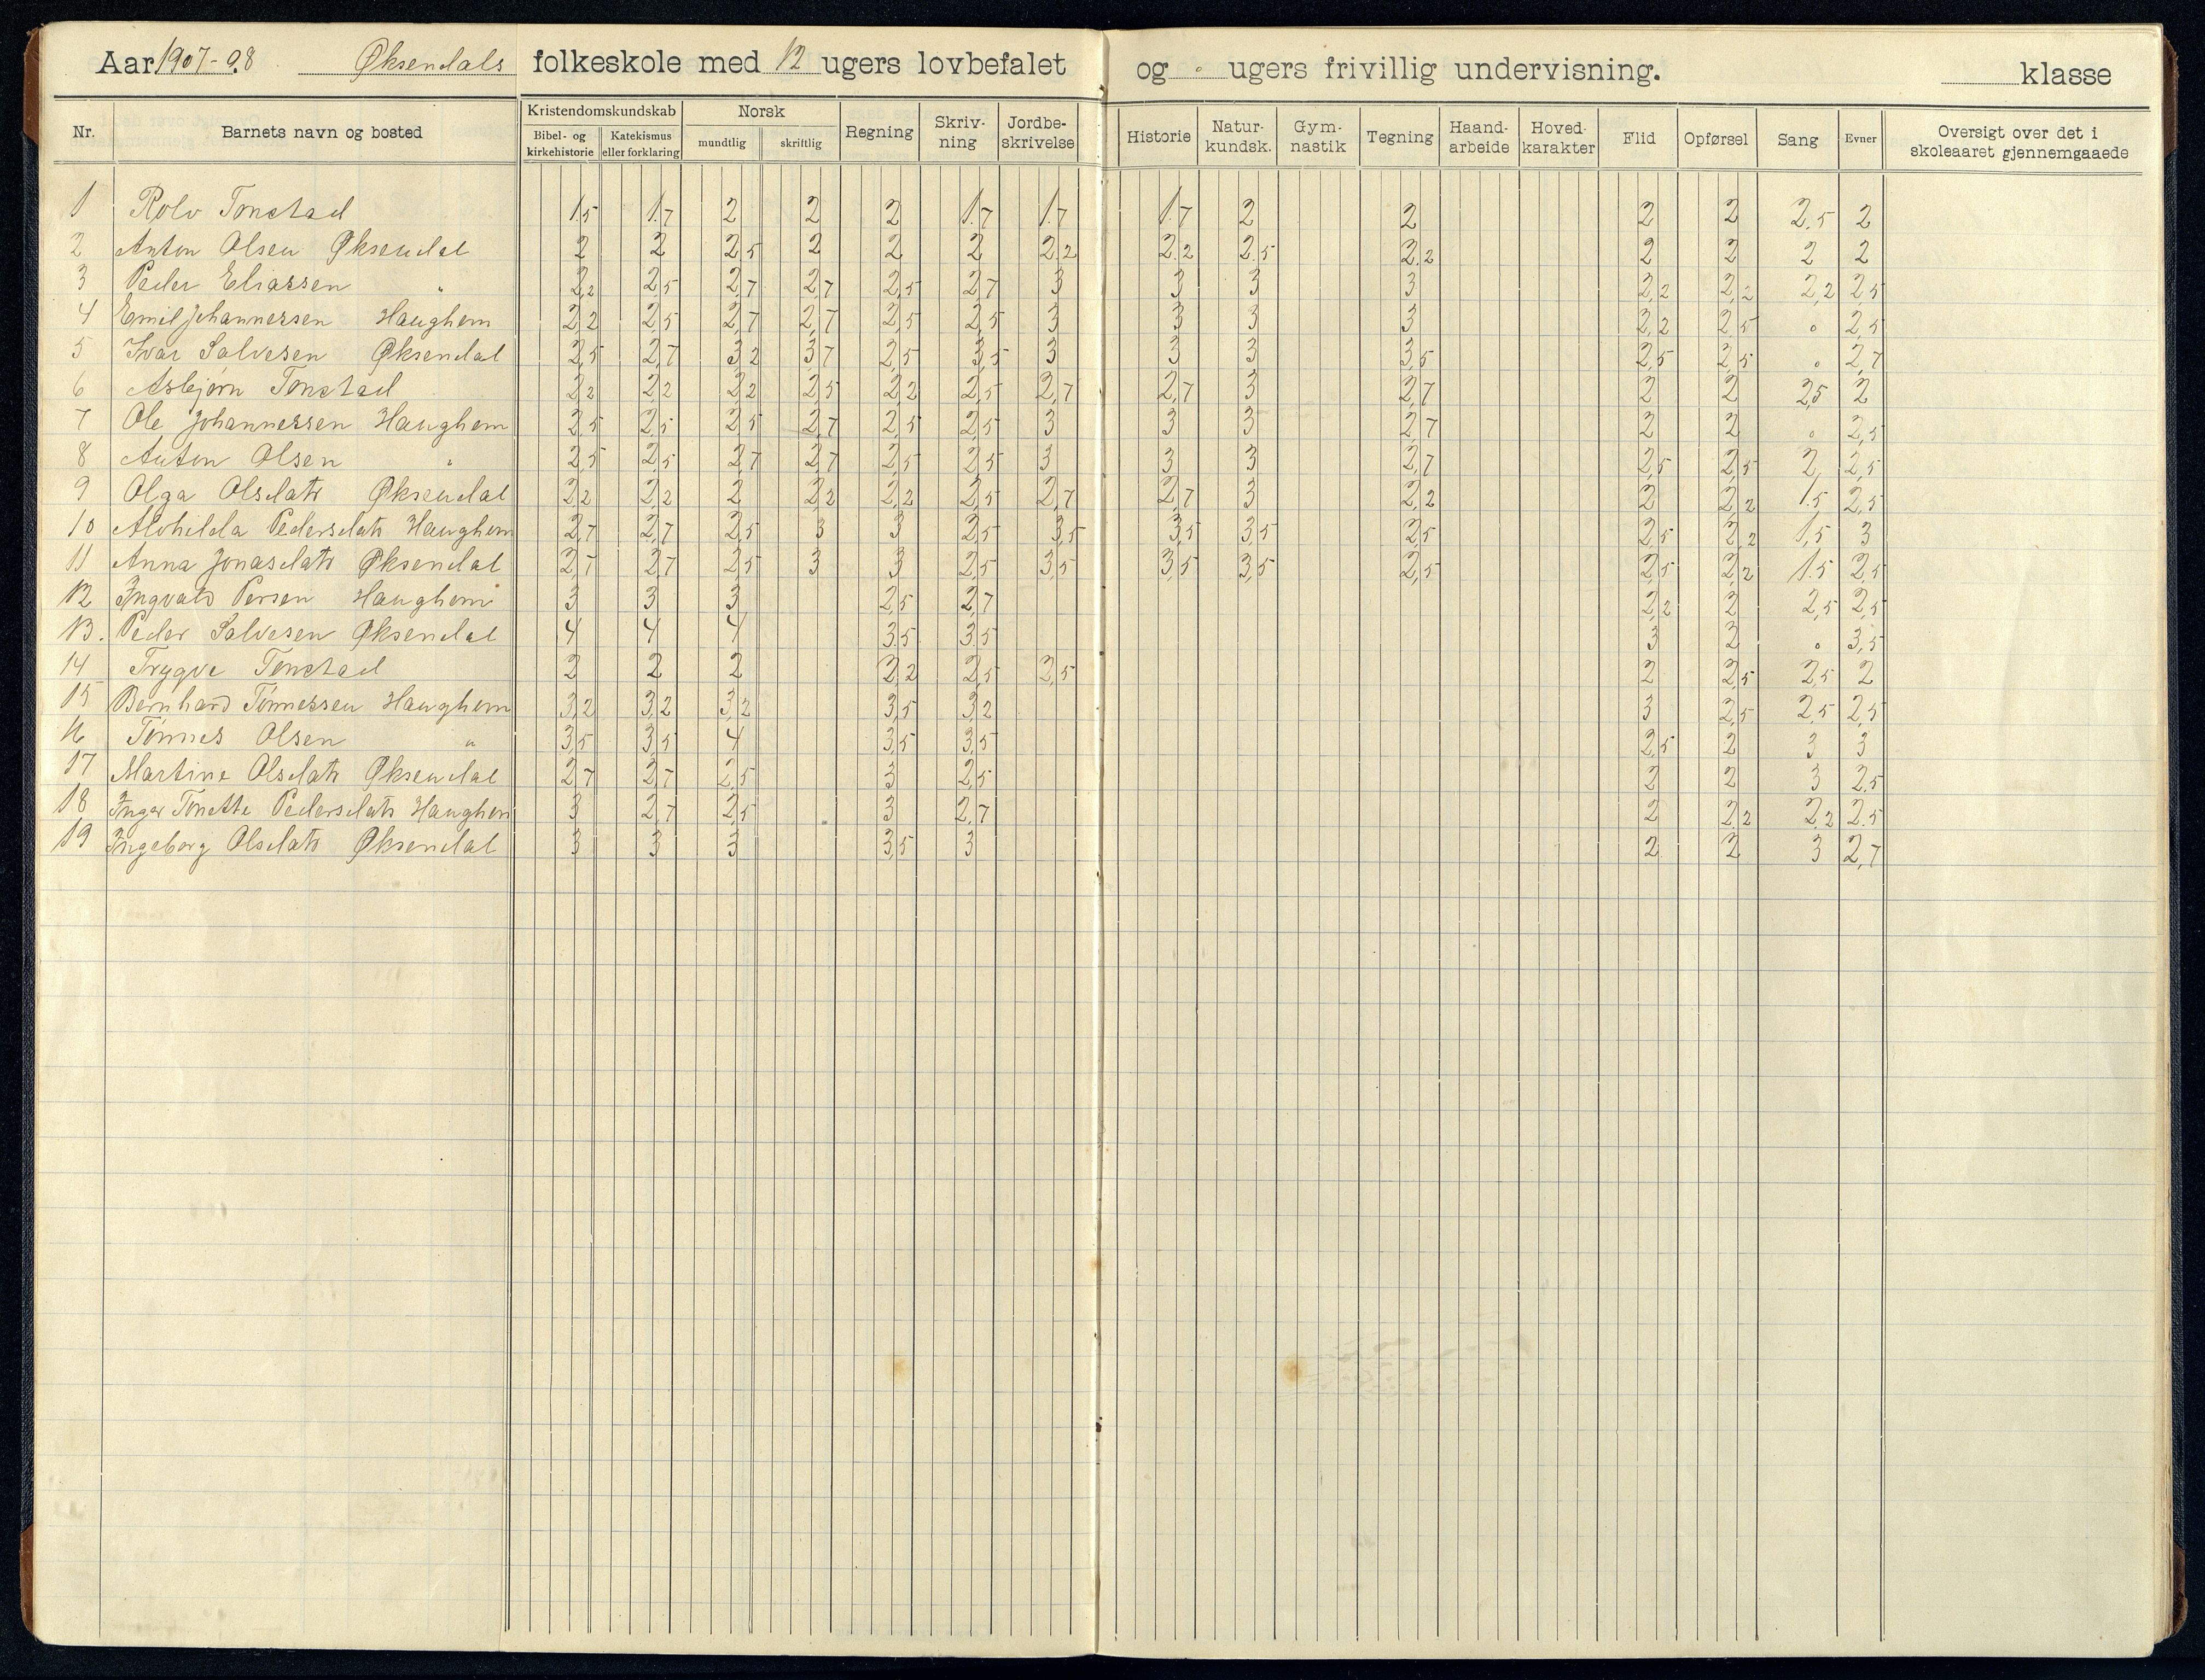 Aar 1907-08 Øksendals folkeskole med 12 ugers lovbefalet og " ugers frivillig undervisning. klasse
Nr. Barnets navn og bosted Kristendomskundskab Norsk Regning Skriv-ning Jordbe-skrivelse Historie Natur-kundsk. Gym-nastik Tegning Haand-arbeide Hoved-karakter Flid Opførsel Sang Evner Oversigt over det i skoleaaret gjennemgaaede
Bibel- og kirkehistorie Katekismus eller forklaring mundtlig skriftlig
1 Rolv Tonstad 1.5 1.7 2 2 2 1.7 1.7 1.7 2 2 2 2 2,5 2
2 Anton Olsen Øksendal 2 2 2,5 2 2 2 2.2 2.2 2.5 2.2 2 2 2 2
3 Peder Eliassen " 2,2 2,5 2,7 2,7 2,5 2,7 3 3 3 3 2,2 2,2 2,2 2,5
4 Emil Johannessen Haughom 2,2 2,5 2,7 2,7 2,5 2,5 3 3 3 3 2,2 2,5 " 2,5
5 Ivar Salvesen Øksendal 2,5 2,7 3,2 3,7 2,5 3,5 3 3 3 3,5 2,5 2,5 " 2,7
6 Asbjørn Tonstad 2,2 2,2 2,2 2,5 2,2 2,5 2,7 2,7 3 2,7 2 2 2,5 2
7 Ole Johannessen Haughom 2,5 2,5 2,5 2,7 2,5 2,5 3 3 3 2,7 2 2 " 2,5
8 Anton Olsen " 2,5 2,5 2,7 2,7 2,5 2,5 3 3 3 2,7 2,5 2,5 2 2,5
9 Olga Olsdatr Øksendal 2,2 2,2 2 2,2 2,2 2,5 2,7 2,7 3 2,2 2 2,2 1.5 2,5
10 Alvhilda Pedersdatr Haughom 2,7 2,7 2,5 3 3 2,5 3,5 3,5 3,5 2,5 2,5 2,2 1,5 3
11 Anna Jonasdatr Øksendal 2,7 2,7 2,5 3 3 2,5 3,5 3,5 3,5 2,5 2,5 2,2 1.5 2,5
12 Ingvald Persen Haughom 3 3 3 2,5 2,7 2,2 2 2,5 2,5
13. Peder Salvesen Øksendal 4 4 4 3.5 3.5 3 2 " 3,5
14 Trygve Tonstad 2 2 2 2,2 2,5 2,5 2 2,5 2,5 2
15 Bernhard Tønnessen Haughom 3,2 3,2 3,2 3,5 3,2 3 2,5 2,5 2,5
16 Tønnes Olsen " 3,5 3,5 4 3,5 3,5 2,5 2 3 3
17 Martine Olsdatr Øksendal 2,7 2,7 2,5 3 2,5 2 2 3 2,5
18 Inger Tonette Pedersdatr Haughom 3 2,7 2,5 3 2,7 2 2,2 2,2 2.5
19 Ingeborg Olsdatr Øksendal 3 3 3 3,5 3 2 2 3 2,7